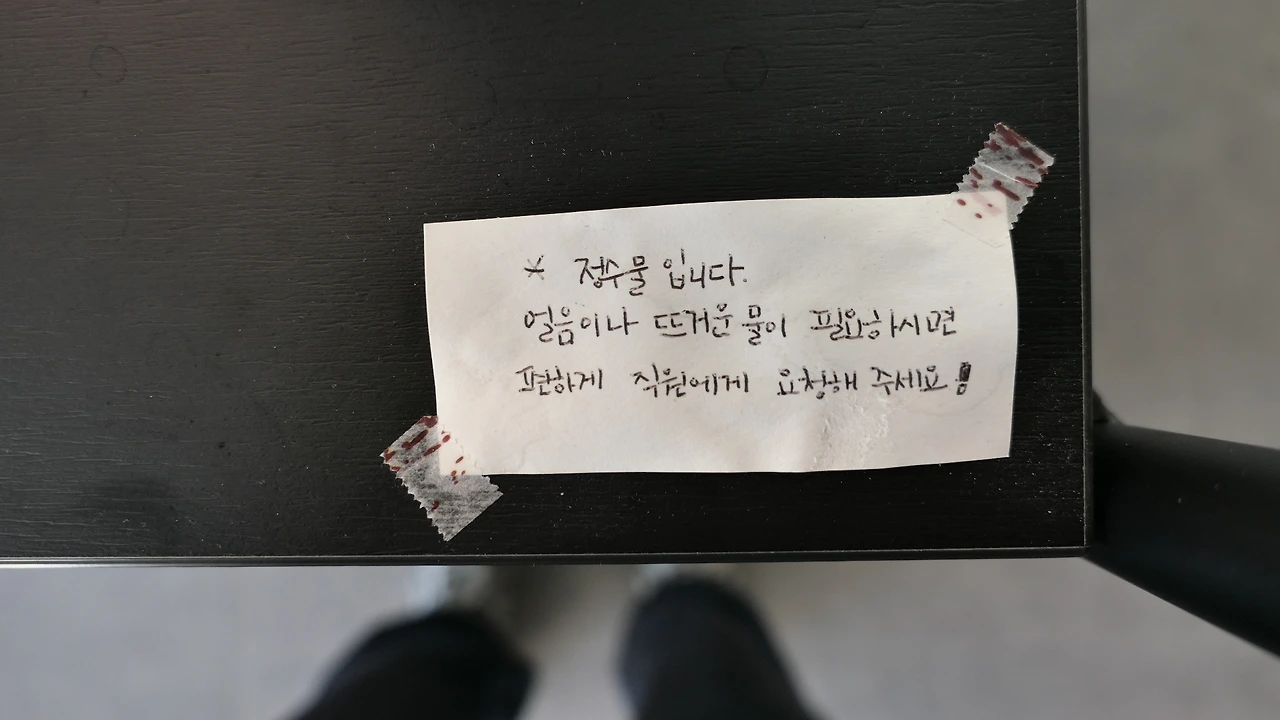 * 정수물 입니다.
얼음이나 뜨거운 물이 필요하시면
편하게 직원에게 요청해 주세요!